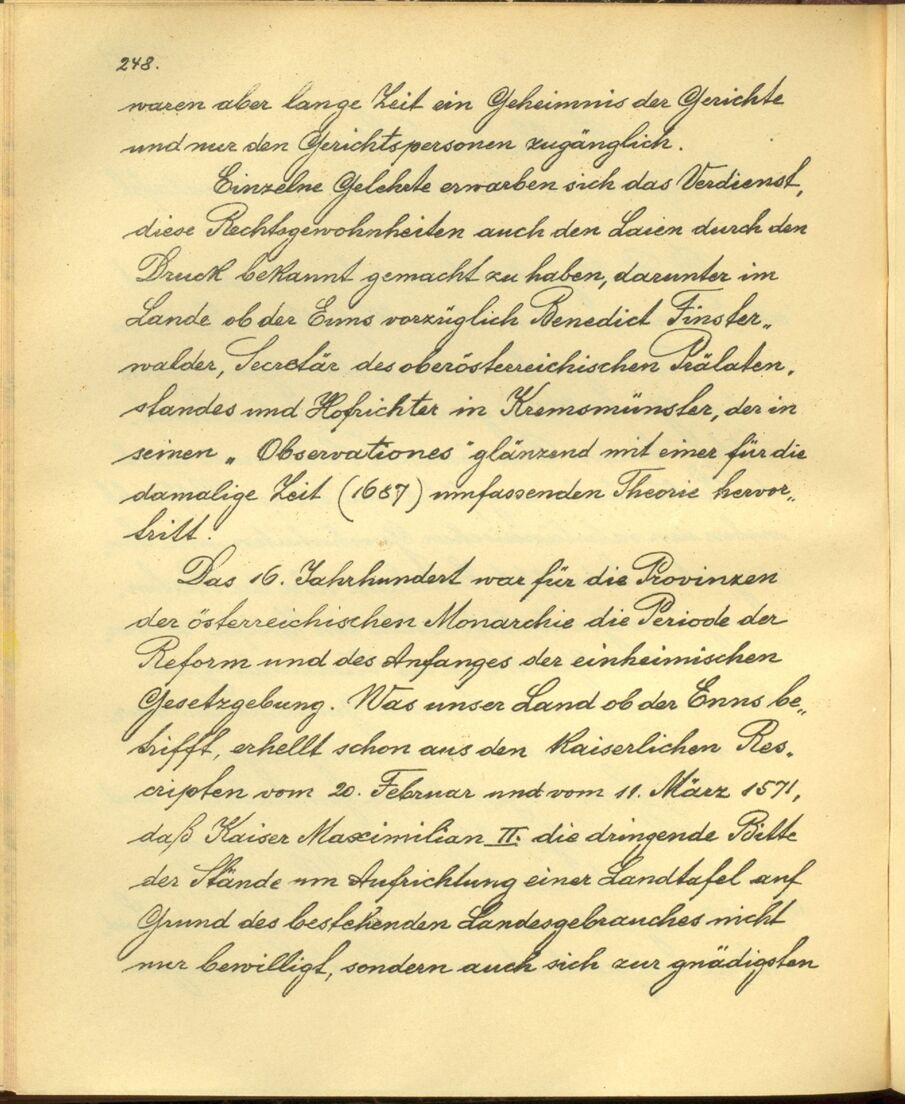 248.
waren aber lange Zeit ein Geheimnis der Gerichte
und nur den Gerichtspersonen zugänglich.
Einzelne Gelehrte erwarben sich das Verdienst,
diese Rechtsgewohnheiten auch den Laien durch den
Druck bekannt gemacht zu haben, darunter im
Lande ob der Enns vorzüglich Benedict Finster„
walder, Secretär des oberösterreichischen Prälaten„
standes und Hofrichter in Kremsmünster, der in
seinen „Observationes" glänzend mit einer für die
damalige Zeit (1687) umfassenden Theorie hervor„
tritt.
Das 16. Jahrhundert war für die Provinzen
der österreichischen Monarchie die Periode der
Reform und des Anfanges der einheimischen
Gesetzgebung. Was unser Land ob der Enns be„
trifft, erhellt schon aus den kaiserlichen Res„
cripten vom 20. Februar und vom 11. März 1571,
daß Kaiser Maximilian II. die dringende Bitte
der Stände um Aufrichtung einer Landtafel auf
Grund des bestehenden Landesgebrauches nicht
nur bewilligt, sondern auch sich zur gnädigsten